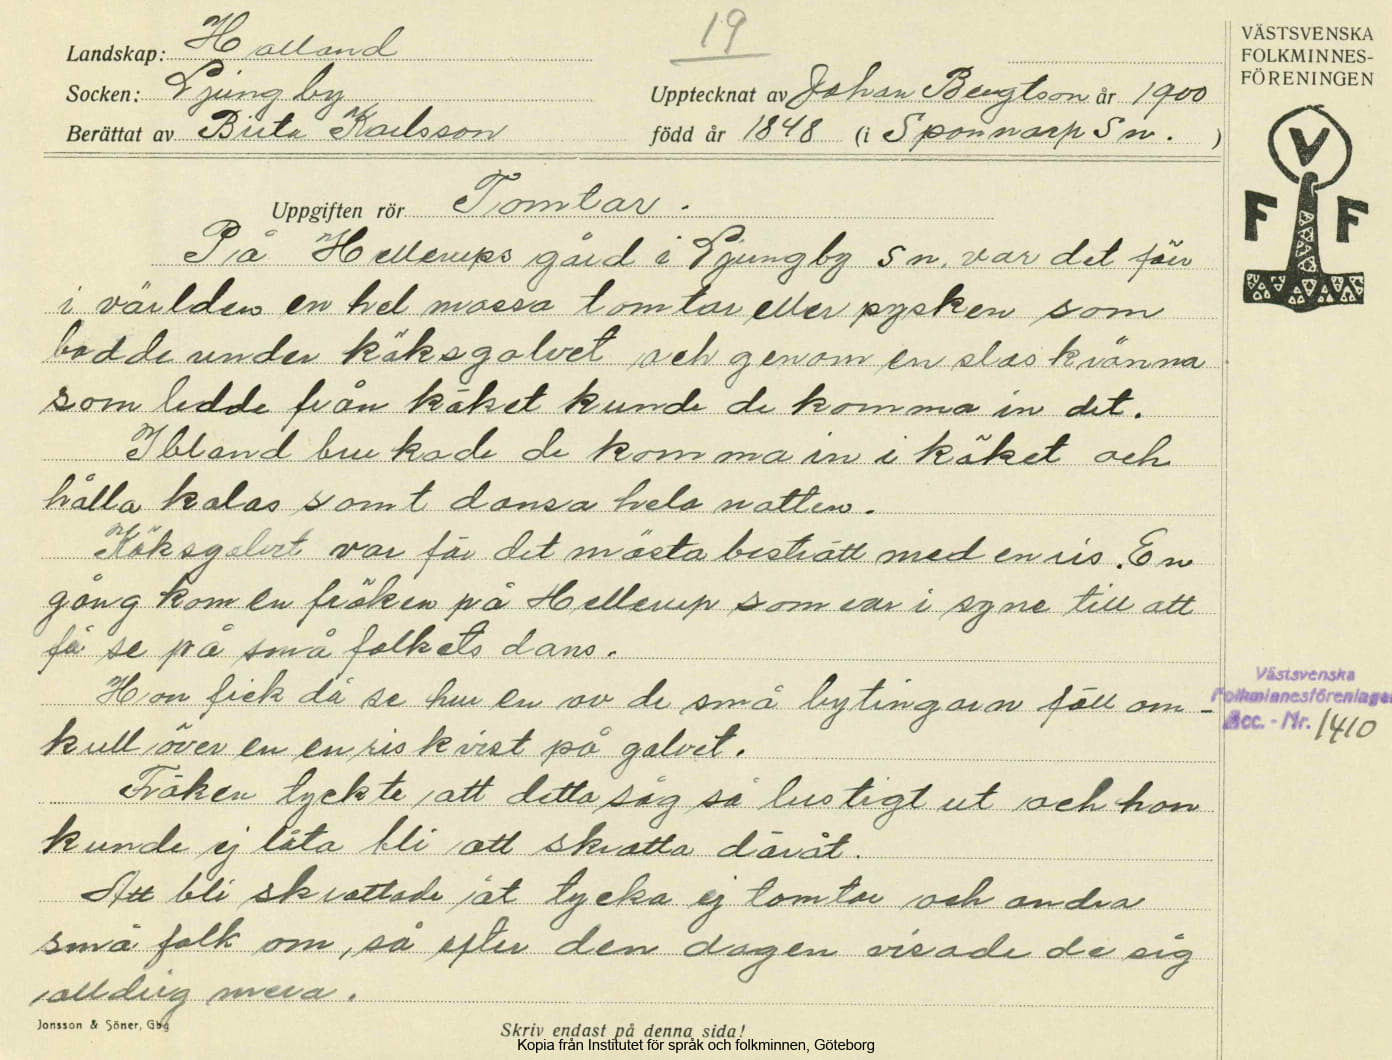 19
Landskap: Halland
Socken: Ljungby
Berättat av Brita Karlsson
Upptecknat av Johan Bengtson år 1900
född år 1848 (i Sponnarp Sn. )
VÄSTSVENSKA
FOLKMINNES-
FÖRENINGEN
V
F F
Uppgiften rör Tomtar.
På Hellerups gård i Ljungby Sn. var det förr
i världen en hel massa tomtar eller pysken som
bodde under köksgolvet och genom en slaskränna
som ledde från köket kunde de komma in det.
Ibland brukade de komma in i köket och
hålla kalas somt dansa hela natten.
Köksgolvet var för det mästa bestrött med enris. En
gång kom en fröken på Hellerup som var i syne till att
få se på små folkets dans.
Hon fick då se hur en av de små bytingarn föll om-
kull över en enriskvist på golvet.
Fröken tyckte att detta såg så lustigt ut och hon
kunde ej låta bli att skratta däråt.
Att bli skrattade åt tycka ej tomtar och andra
små folk om, så efter den dagen visade de sig
alldrig mera.
Västsvenska
Folkminnesföreningen
Acc. - Nr. 1410
Jonsson & Söner, Gbg
Skriv endast på denna sida!
Kopia från Institutet för språk och folkminnen, Göteborg